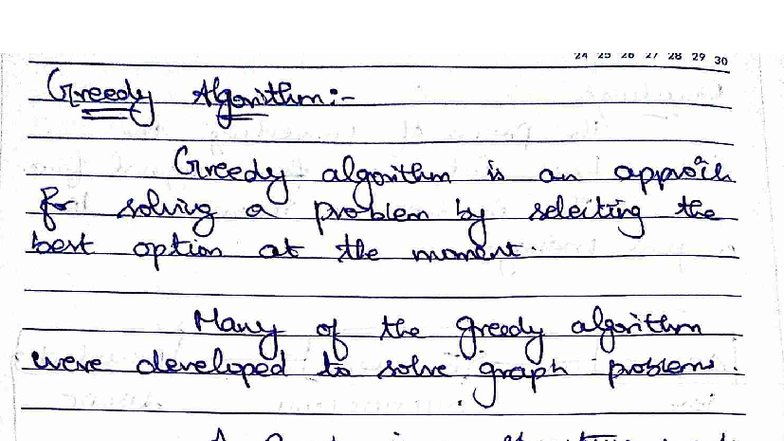 24 25 26 27 28 29 30
Greedy Algorithm:-
Greedy algorithm is an approach
for solving a problem by selecting the
best option at the moment.
Many of the greedy algorithm
were developed to solve graph problems.